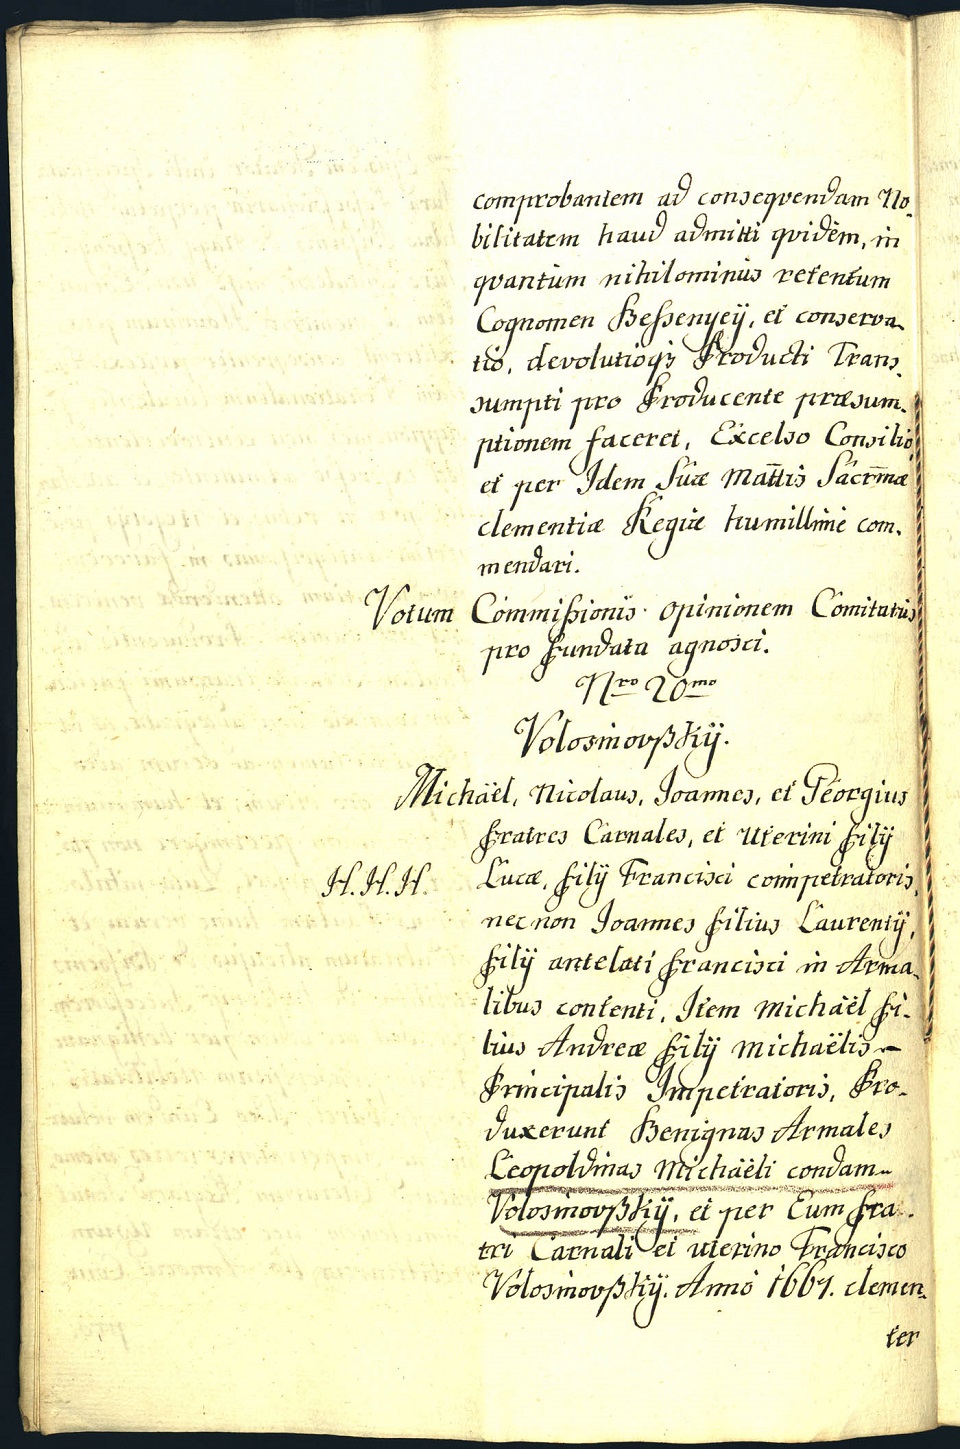 comprobantem ad conseqvendam No-
bilitatem haud admitti qvidèm, in
qvantùm nihilominùs retentum
Cognomen Beßenyeÿ, et conserva-
tio, devolutioq́ꝫ Producti Trans-
sumpti pro Producente præsum-
ptionem faceret, Excelso Consilio
et per Idem Súæ Mattis Sacrmæ
clementiæ Regiæ humillimè com-
mendari.
Votum Commißionis opinionem Comitatûs
pro fundata agnosci.
Nro 20mo
Volosinovßkÿ.
Michäel, Nicolaus, Joannes, et Georgius
fratres Carnales, et Uterini filÿ
H. H. H. Lucæ, filÿ Francisci coimpetratoris,
nec non Joannes filius Laurentÿ,
filÿ antelati Francisci in Arma-
libus contenti, Item Michäel fi-
lius Andreæ filÿ Michäelis
Principalis Impetratoris, Pro-
duxerunt Benignas Armales
Leopoldinas Michäeli condam
Volosinovßkÿ, et per Eum fra-
tri Carnali et uterino Francisco
Volosinovßkÿ. Annò 1667. clemen-
ter